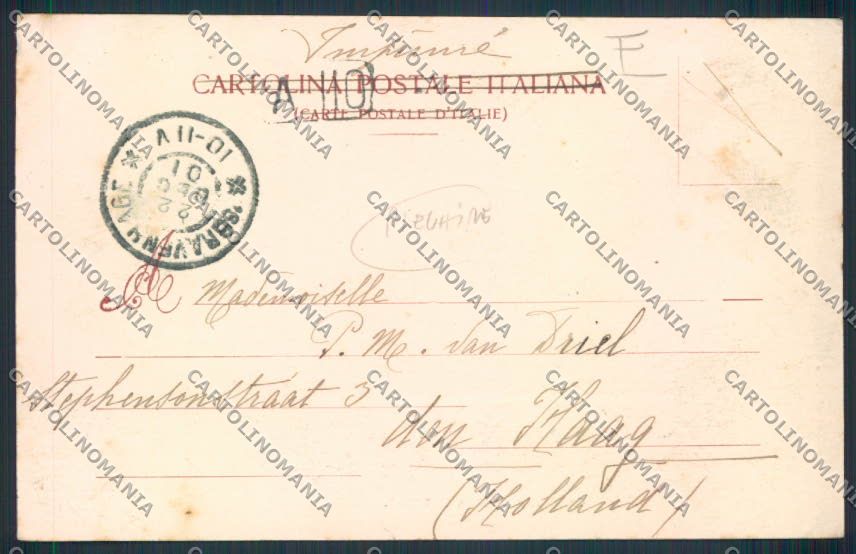 Imprimé
E
CARTOLINA POSTALE ITALIANA
(CARTE POSTALE D'ITALIE)
A 110
'SGRAVENHAGE
10-11V
22 DEC
01
A Mademoiselle
P. M. van Driel
Stephensonstraat 3
den Haag
(Holland)
CARTOLINOMANIA